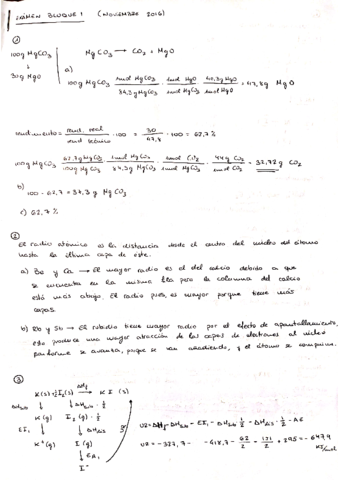 EXÁMEN BLOQUE 1 (NOVIEMBRE 2016)
①
100g MgCO3
↓
30g MgO
MgCO3 → CO2 + MgO
a)
100g MgCO3 · 1mol MgCO3 / 84,3g MgCO3 · 1mol MgO / 1mol MgCO3 · 40,3g MgO / 1mol MgO = 47,8 g MgO
rendimiento = rend. real / rend. teórico · 100 = 30 / 47,8 · 100 = 62,7 %
100g MgCO3 · 62,7g MgCO3 / 100g MgCO3 · 1mol MgCO3 / 84,3g MgCO3 · 1mol CO2 / 1mol MgCO3 · 44g CO2 / 1mol CO2 = 32,72 g CO2
b)
100 - 62,7 = 37,3 g MgCO3
c) 62,7 %
②
El radio atómico es la distancia desde el centro del núcleo del átomo
hasta la última capa de este.
a) Be y Ca → El mayor radio es el del calcio debido a que
se encuentra en la misma fila pero la columna del calcio
está más abajo. El radio pues, es mayor porque tiene más
capas.
b) Rb y Sb → El rubidio tiene mayor radio por el efecto de apantallamiento,
esto produce una mayor atracción de las capas de electrones al núcleo
conforme se avanza, porque se van añadiendo, y el átomo se comprime.
③
K(s) + ½ I2(s) → KI (s)
K(g) I2(g) · ½
K+(g) I(g)
I-
-327,7 - 418,7 - 62/2 - 151/2 + 295 = -647,9
KJ/mol